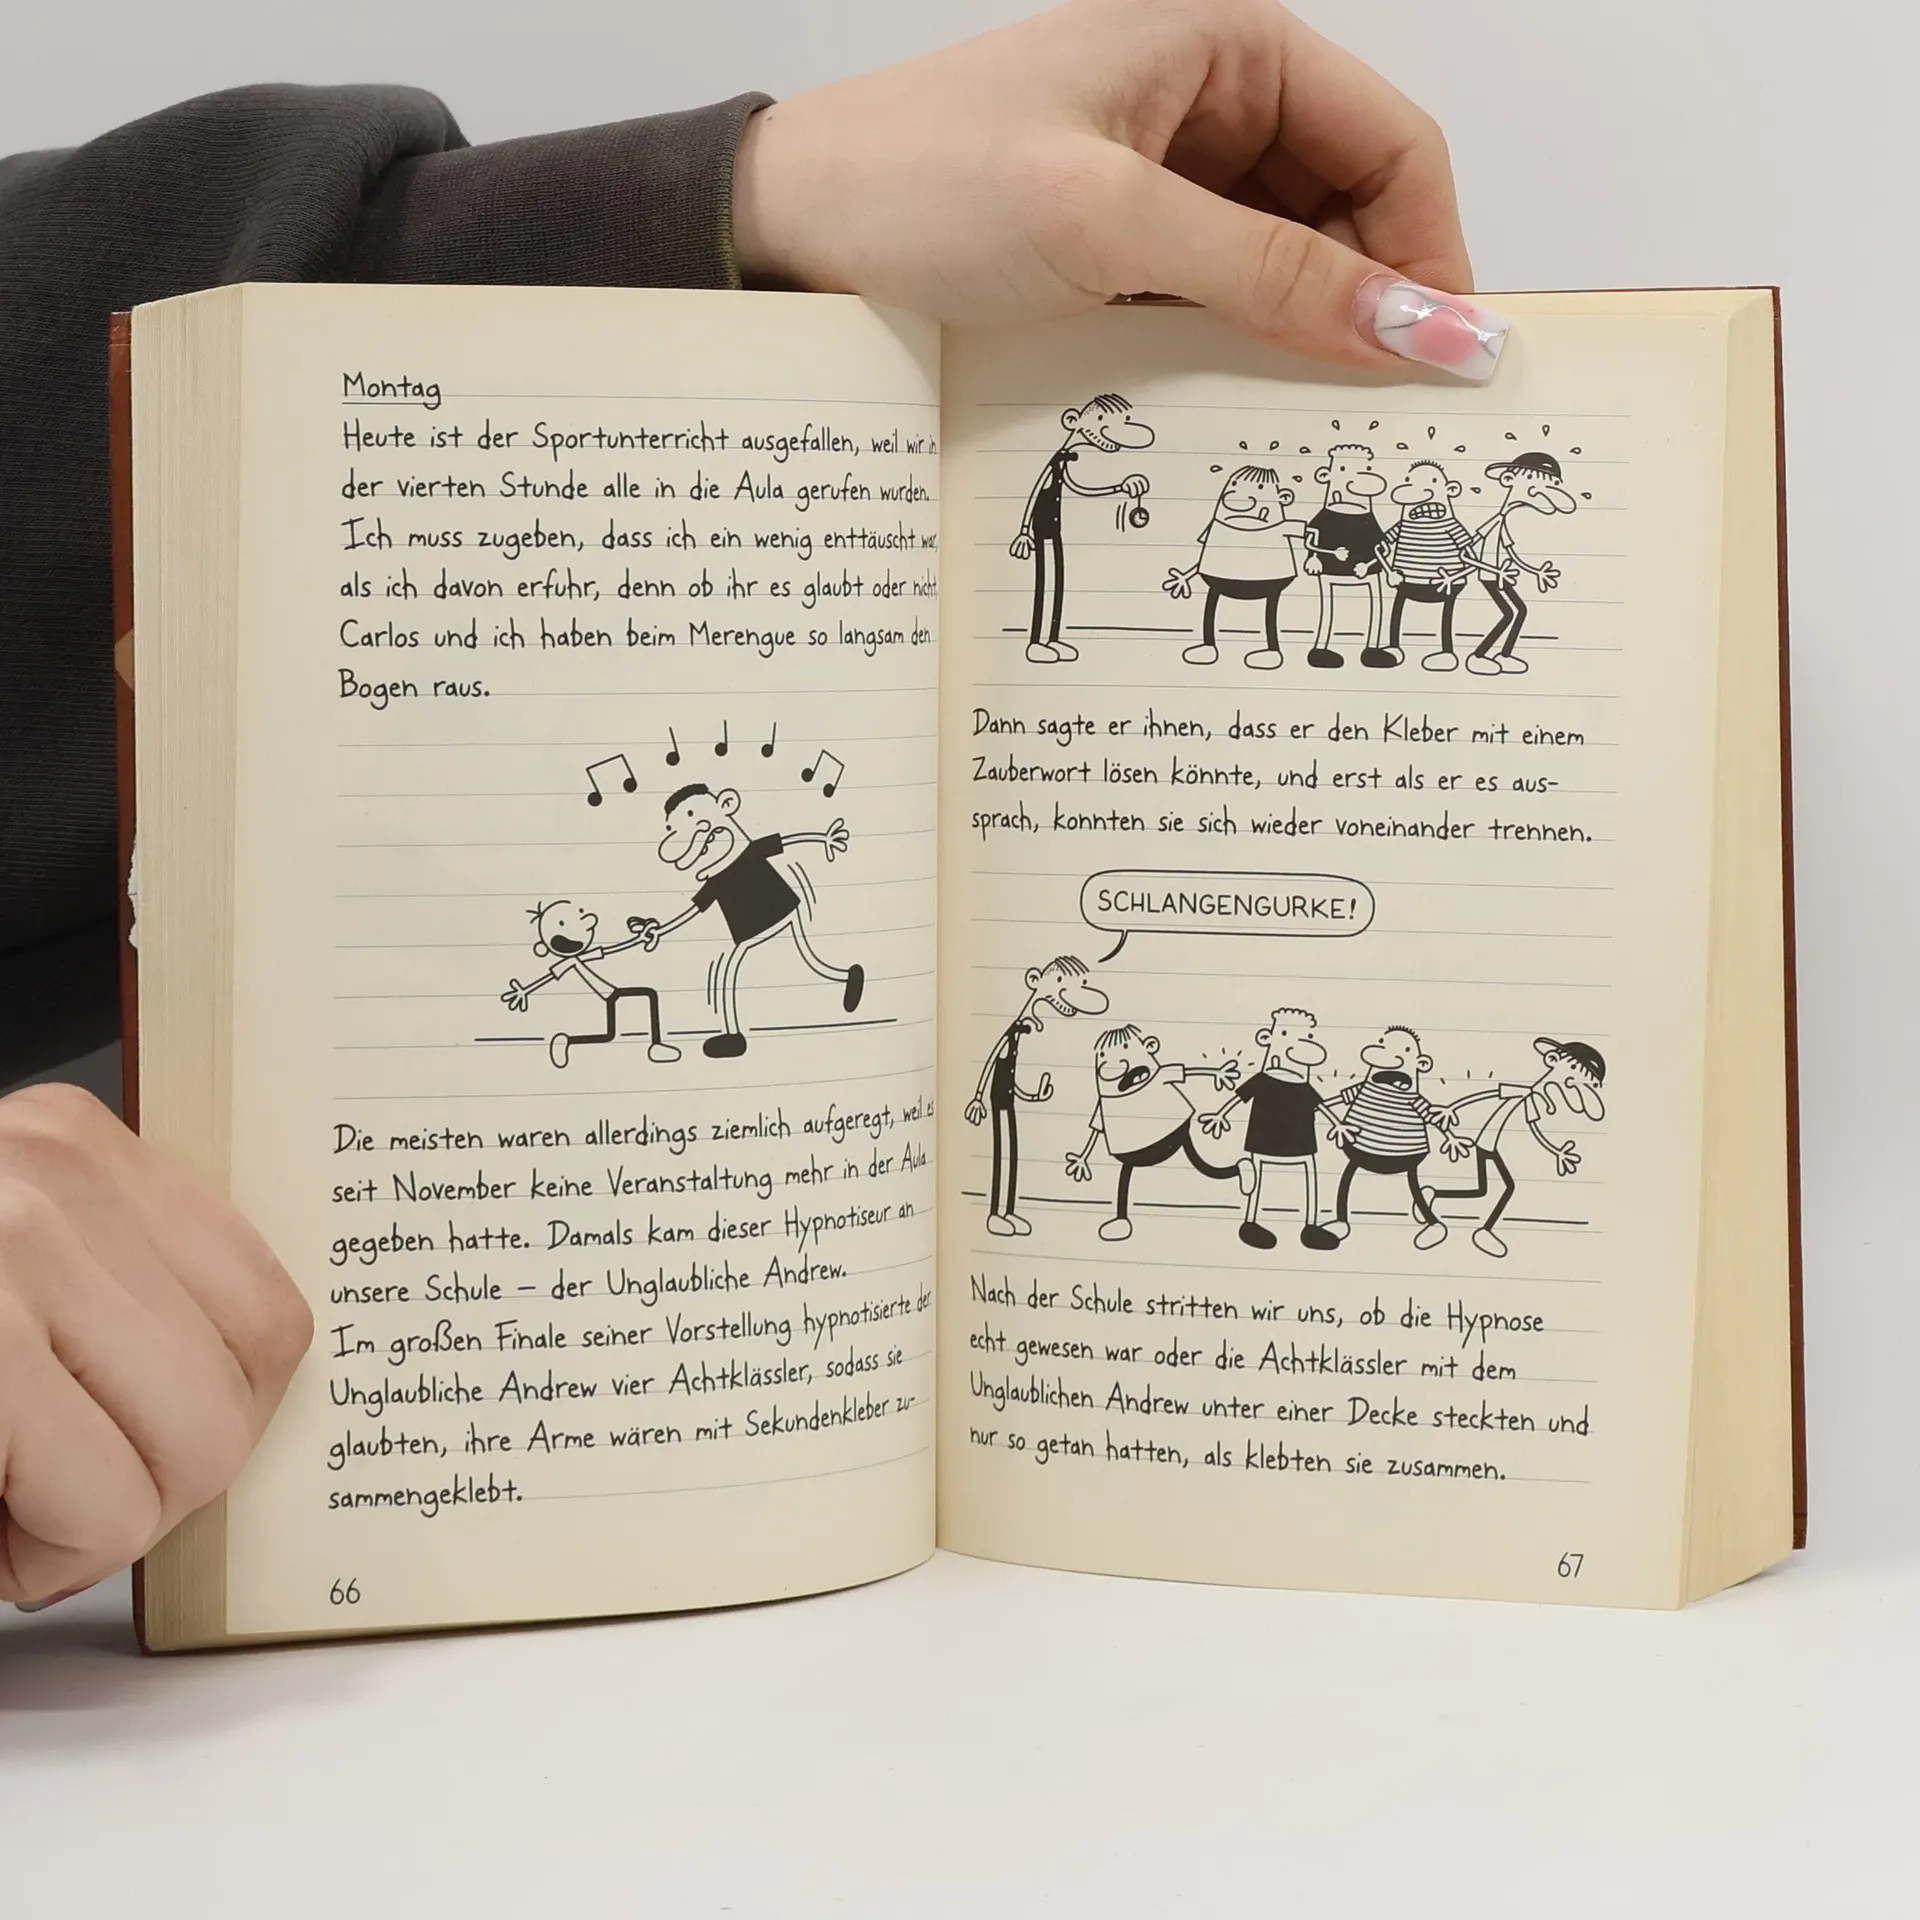 Montag
Heute ist der Sportunterricht ausgefallen, weil wir in
der vierten Stunde alle in die Aula gerufen wurden.
Ich muss zugeben, dass ich ein wenig enttäuscht war,
als ich davon erfuhr, denn ob ihr es glaubt oder nicht,
Carlos und ich haben beim Merengue so langsam den
Bogen raus.
Die meisten waren allerdings ziemlich aufgeregt, weil es
seit November keine Veranstaltung mehr in der Aula
gegeben hatte. Damals kam dieser Hypnotiseur an
unsere Schule – der Unglaubliche Andrew.
Im großen Finale seiner Vorstellung hypnotisierte der
Unglaubliche Andrew vier Achtklässler, sodass sie
glaubten, ihre Arme wären mit Sekundenkleber zu-
sammengeklebt.
66
Dann sagte er ihnen, dass er den Kleber mit einem
Zauberwort lösen könnte, und erst als er es aus-
sprach, konnten sie sich wieder voneinander trennen.
SCHLANGENGURKE!
Nach der Schule stritten wir uns, ob die Hypnose
echt gewesen war oder die Achtklässler mit dem
Unglaublichen Andrew unter einer Decke steckten und
nur so getan hatten, als klebten sie zusammen.
67